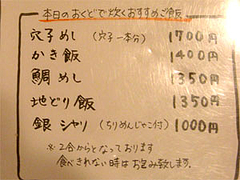 本日のおくどで炊くおすすめご飯
穴子めし (穴子一本分) 1700円
かき飯 1400円
鯛めし 1350円
地どり飯 1350円
銀シャリ (ちりめんじゃこ付) 1000円
※2合からとなっております
食べきれない時はお包み致します。